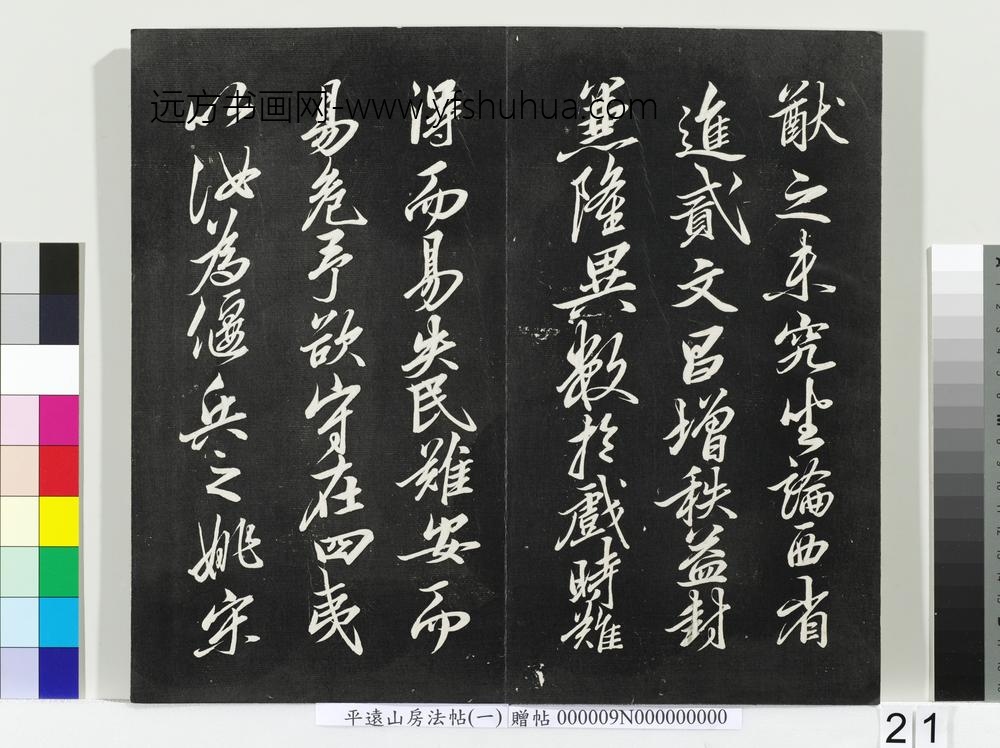 猷之未究坐論西省
進貳文昌增秩益封
兼隆異數於戲時難
得而易失民難安而
易危予欲守在四夷
以汝為偃兵之姚宋
远方书画网-www.yfshuhua.com
平遠山房法帖(一) 贈帖 000009N000000000
21